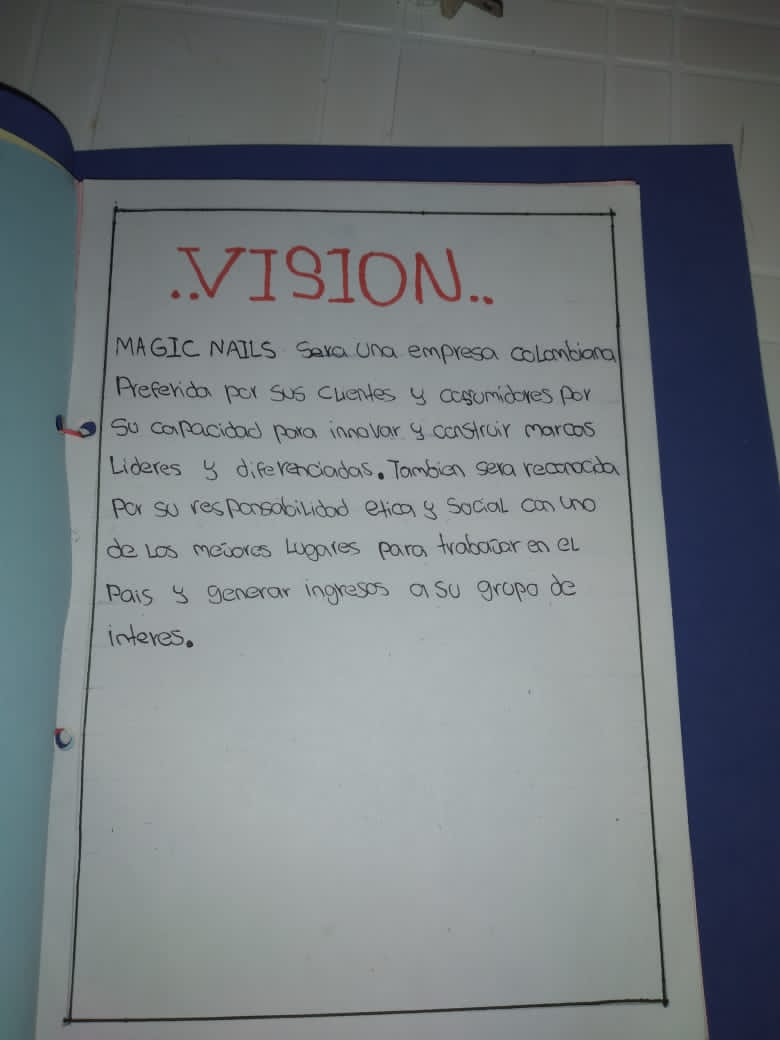 ..VISION..
MAGIC NAILS Sera una empresa colombiana
Preferida por sus clientes y cosumidores por
su capacidad para innovar y construir marcas
Lideres y diferenciadas. Tambien sera reconocida
por su responsabilidad etica y Social con uno
de Los mejores Lugares para trabajar en el
Pais y generar ingresos a su grupo de
interes.